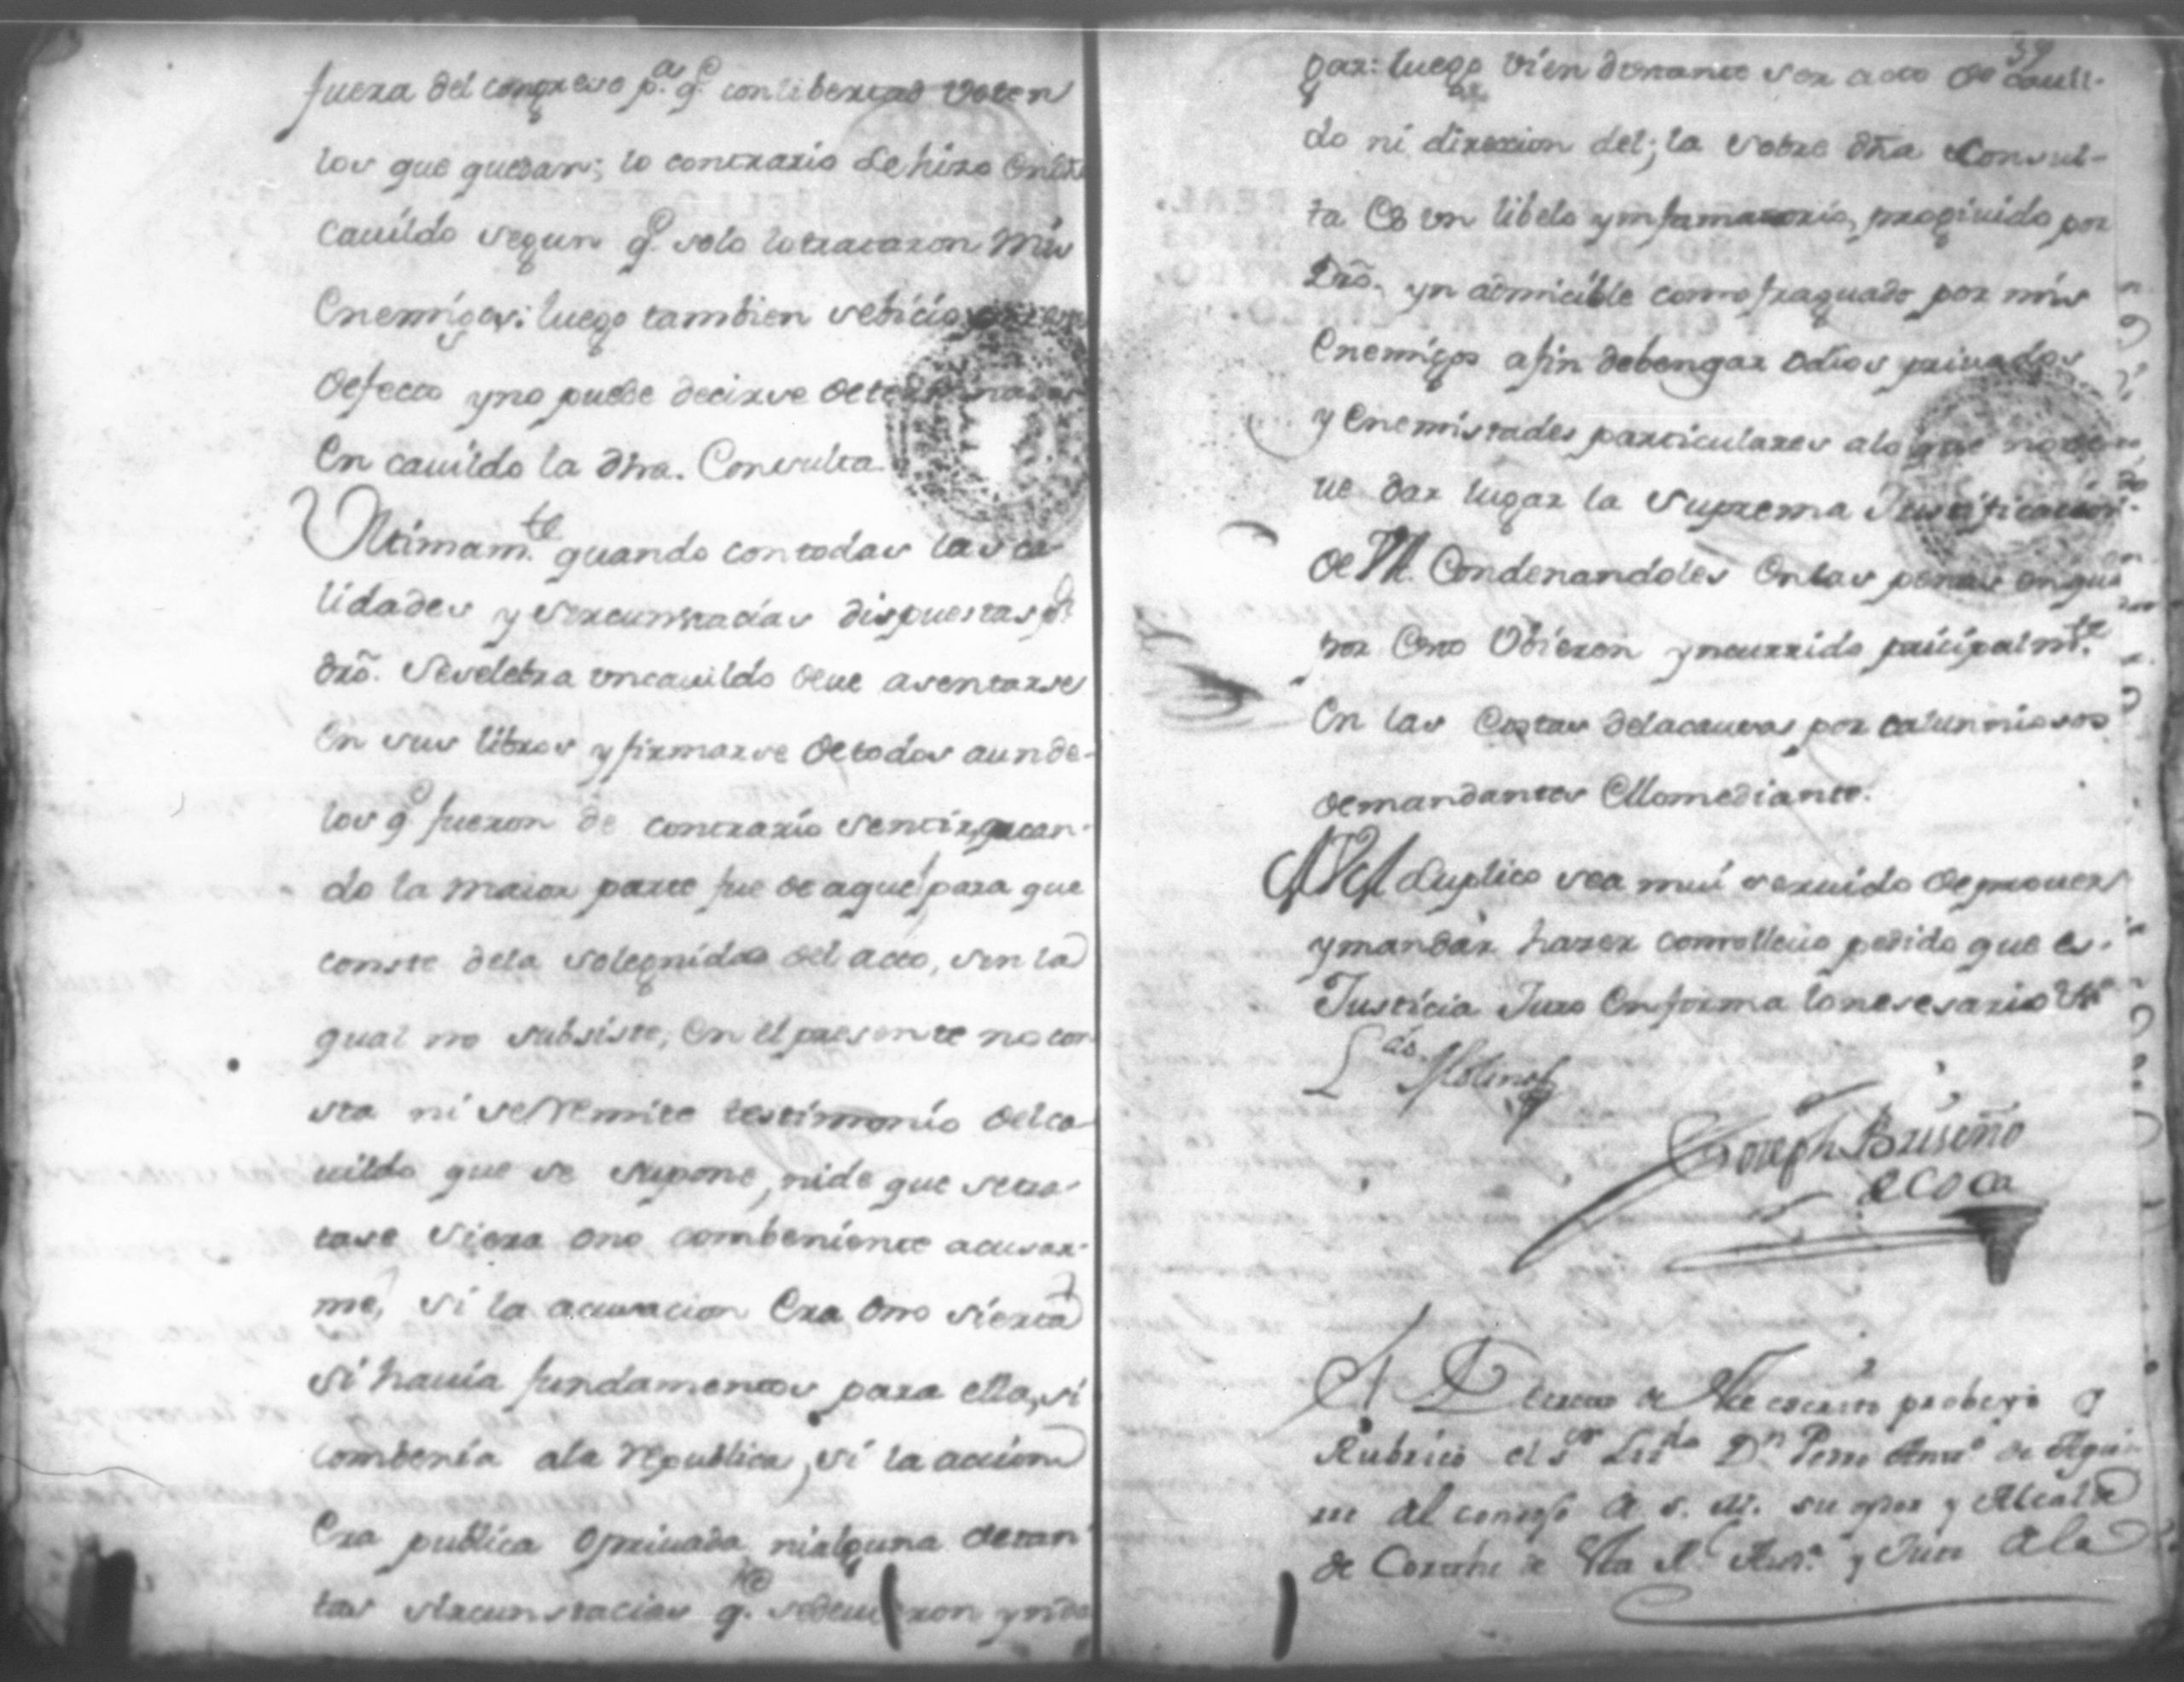 fuera del congreso p.ᵃ q.ᵉ con libertad voten
los que quedan; lo contrario se hizo en
cauildo segun q.ᵉ solo lo trataron mis
Enemigos: luego tambien
defecto y no puede decirse
En cauildo la dha. Consulta.
Vltimam.ᵗᵉ quando con todas las ca
lidades y sircunstacias dispuestas p.ʳ
dro. se selebra un cauildo deue asentarse
En sus libros y firmarse de todos aun de
los q.ᵉ fueron de contrario sentir,
do la maior parte fue de aquel para que
conste dela solegnidad del acto, sin la
qual no subsiste; En el presente no con
sta ni se remite testimonio del ca
uildo que se supone, ni de que se tra
tase si era o no combeniente acusar
me, si la acusacion Era o no sierta
si hauia fundamentos para ella, si
combenia ala republica, si la accion
Era publica o priuada ni alguna de tan
tas sircunstacias q.ᵉ se deuieron ynda
39
gar: luego vien distante ser acto de cauil-
do ni direxion del; la sobre dha Consul-
ta Es un libelo ymfamatorio, proqiuido por
Dro. yn admicible como fraguado por mis
Enemigos a fin de bengar odios priuados
y Enemistades particulares a lo que no de
ue dar lugar la Suprema Justificacion
de VA. Condenandoles En las penas en que
por Esto Vbieren yncurrido pricipalm.ᵗᵉ
En las Costas dela causa, por calunniosos
demandantes Mediante.
A VA Suplico sea mui seruido de prouer
y mandar hazer como lleuo pedido que es
Justicia Juro En forma lo nesesario &.ᵃ
L.ᵈᵒ Molina
Joseph Briseño
de Coca
El Decreto de este escrito probeyo y
Rubricó el s.ᵒʳ Liz.ᵈᵒ D.ⁿ Pedro
del consejo de s. M. su oydor y Alcalde
de Corte de esta R.ˡ Aud.ᵃ y Juez de la